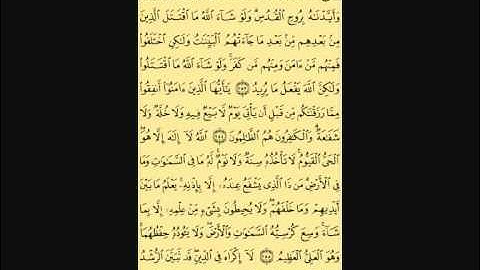 وَأَيَّدْنَٰهُ بِرُوحِ ٱلْقُدُسِ ۗ وَلَوْ شَآءَ ٱللَّهُ مَا ٱقْتَتَلَ ٱلَّذِينَ
مِنۢ بَعْدِهِم مِّنۢ بَعْدِ مَا جَآءَتْهُمُ ٱلْبَيِّنَٰتُ وَلَٰكِنِ ٱخْتَلَفُوا۟
فَمِنْهُم مَّنْ ءَامَنَ وَمِنْهُم مَّن كَفَرَ ۚ وَلَوْ شَآءَ ٱللَّهُ مَا ٱقْتَتَلُوا۟
وَلَٰكِنَّ ٱللَّهَ يَفْعَلُ مَا يُرِيدُ ٢٥٣ يَٰٓأَيُّهَا ٱلَّذِينَ ءَامَنُوٓا۟ أَنفِقُوا۟
مِمَّا رَزَقْنَٰكُم مِّن قَبْلِ أَن يَأْتِىَ يَوْمٌ لَّا بَيْعٌ فِيهِ وَلَا خُلَّةٌ وَلَا
شَفَٰعَةٌ ۗ وَٱلْكَٰفِرُونَ هُمُ ٱلظَّٰلِمُونَ ٢٥٤ ٱللَّهُ لَآ إِلَٰهَ إِلَّا هُوَ
ٱلْحَىُّ ٱلْقَيُّومُ ۚ لَا تَأْخُذُهُۥ سِنَةٌ وَلَا نَوْمٌ ۚ لَّهُۥ مَا فِى ٱلسَّمَٰوَٰتِ وَمَا
فِى ٱلْأَرْضِ ۗ مَن ذَا ٱلَّذِى يَشْفَعُ عِندَهُۥٓ إِلَّا بِإِذْنِهِۦ ۚ يَعْلَمُ مَا بَيْنَ
أَيْدِيهِمْ وَمَا خَلْفَهُمْ ۖ وَلَا يُحِيطُونَ بِشَىْءٍ مِّنْ عِلْمِهِۦٓ إِلَّا بِمَا
شَآءَ ۚ وَسِعَ كُرْسِيُّهُ ٱلسَّمَٰوَٰتِ وَٱلْأَرْضَ ۖ وَلَا يَـُٔودُهُۥ حِفْظُهُمَا ۚ
وَهُوَ ٱلْعَلِىُّ ٱلْعَظِيمُ ٢٥٥ لَآ إِكْرَاهَ فِى ٱلدِّينِ ۖ قَد تَّبَيَّنَ ٱلرُّشْدُ